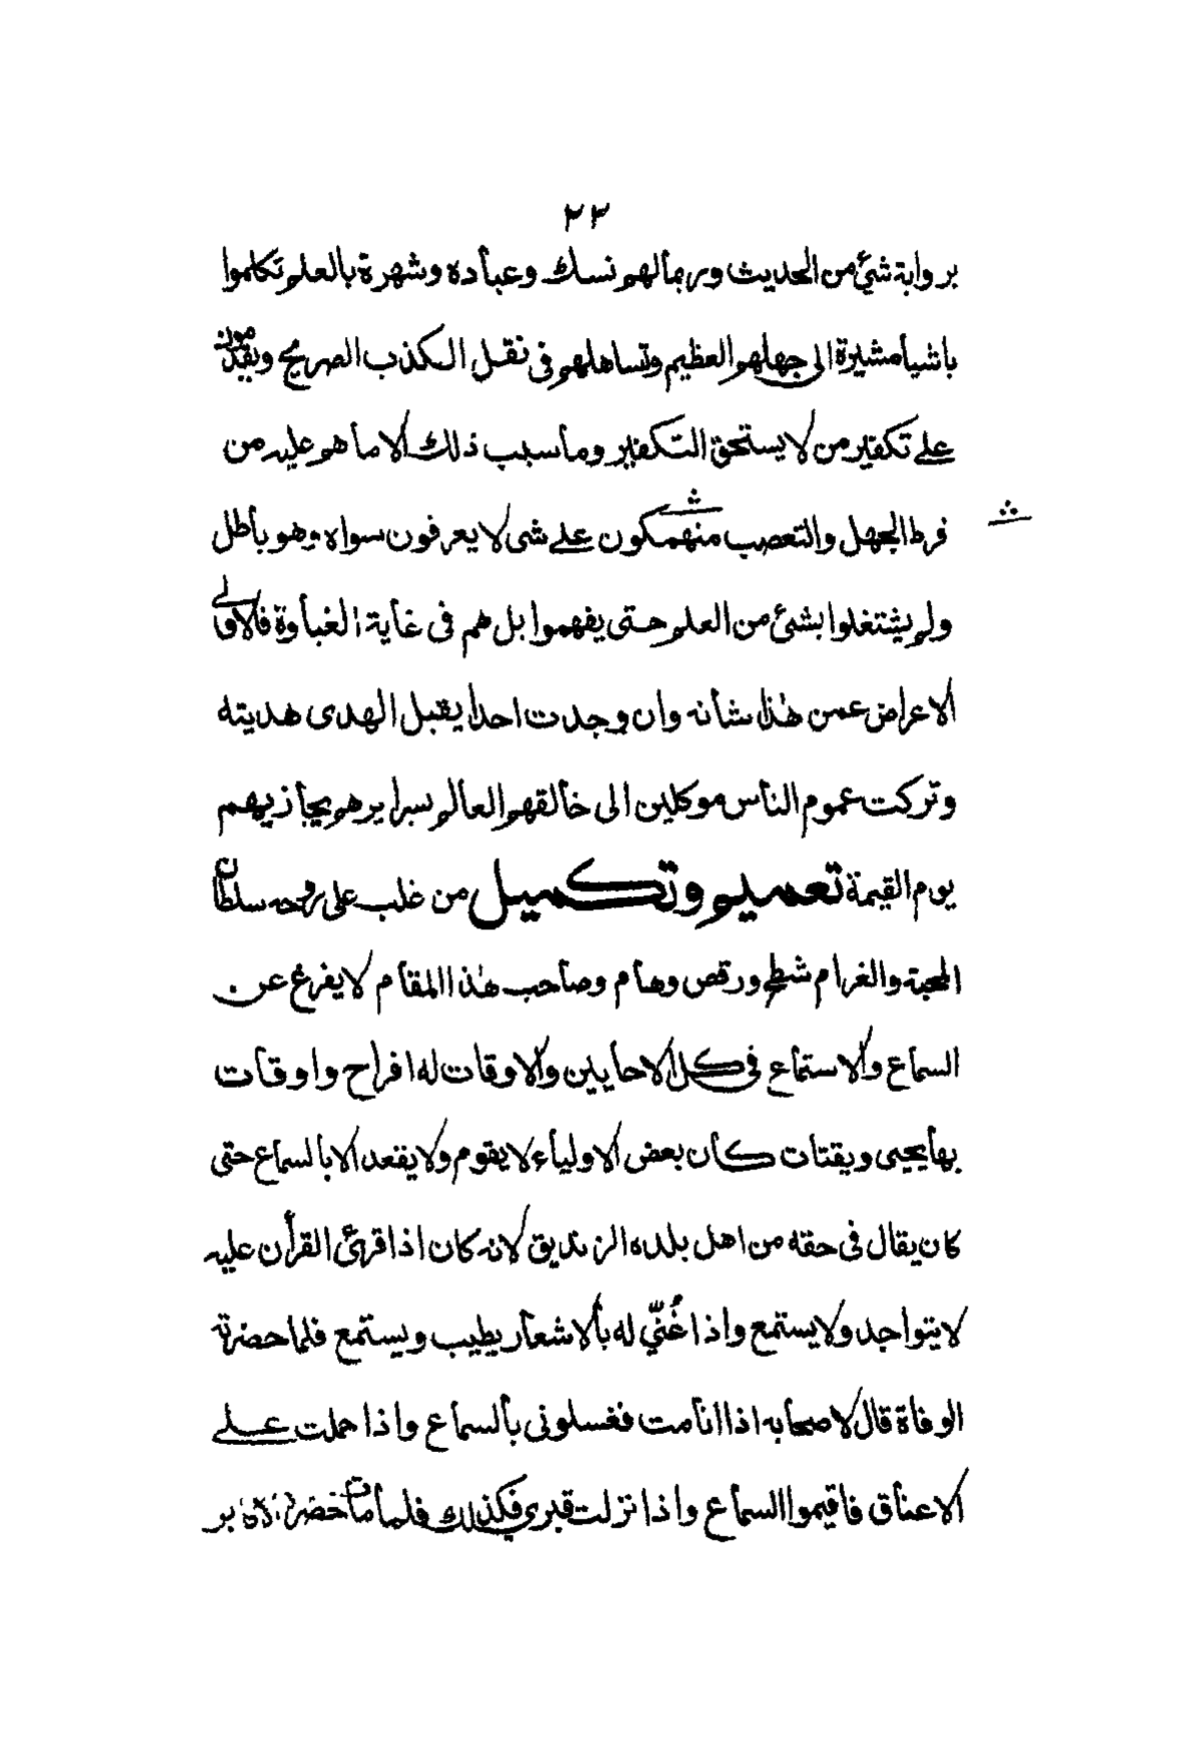 ٢٣
برواية شئ من الحديث وربما لهم نسك وعبادة وشهرة بالعلم تكلموا
باشيأ مشيرة الى جهلهم العظيم وتساهلهم فى نقل الكذب الصريح ويقدمون
على تكفير من لا يستحق التكفير وما سبب ذلك الا ما هو عليه من
فرط الجهل والتعصب منهمكون على شى لا يعرفون سواه وهو باطل
ولم يشتغلوا بشئ من العلم حتى يفهموا بل هم فى غاية الغباوة فالاولى
الاعراض عمن هذا شانه وان وجدت احدا يقبل الهدى هديته
وتركت عموم الناس موكلين الى خالقهم العالم بسرايرهم يجازيهم
يوم القيمة تعميم وتكميل من غلب على روحه سلطان
المحبة والغرام شطح ورقص وهام وصاحب هذا المقام لا يفرغ عن
السماع والاستماع فى كل الاحايين والاوقات له افراح واوقات
بها يحيى ويقتات كان بعض الاولياء لا يقوم ولا يقعد الا بالسماع حتى
كان يقال فى حقه من اهل بلده الزنديق لانه كان اذا قرئ القرأن عليه
لا يتواجد ولا يستمع واذا غُنّي له بالاشعار يطيب ويستمع فلما حضرته
الوفاة قال لاصحابه اذا انا مت فغسلونى بالسماع واذا حملت على
الاعناق فاقيموا السماع واذا نزلت قبري فكذلك فلما مات حضر